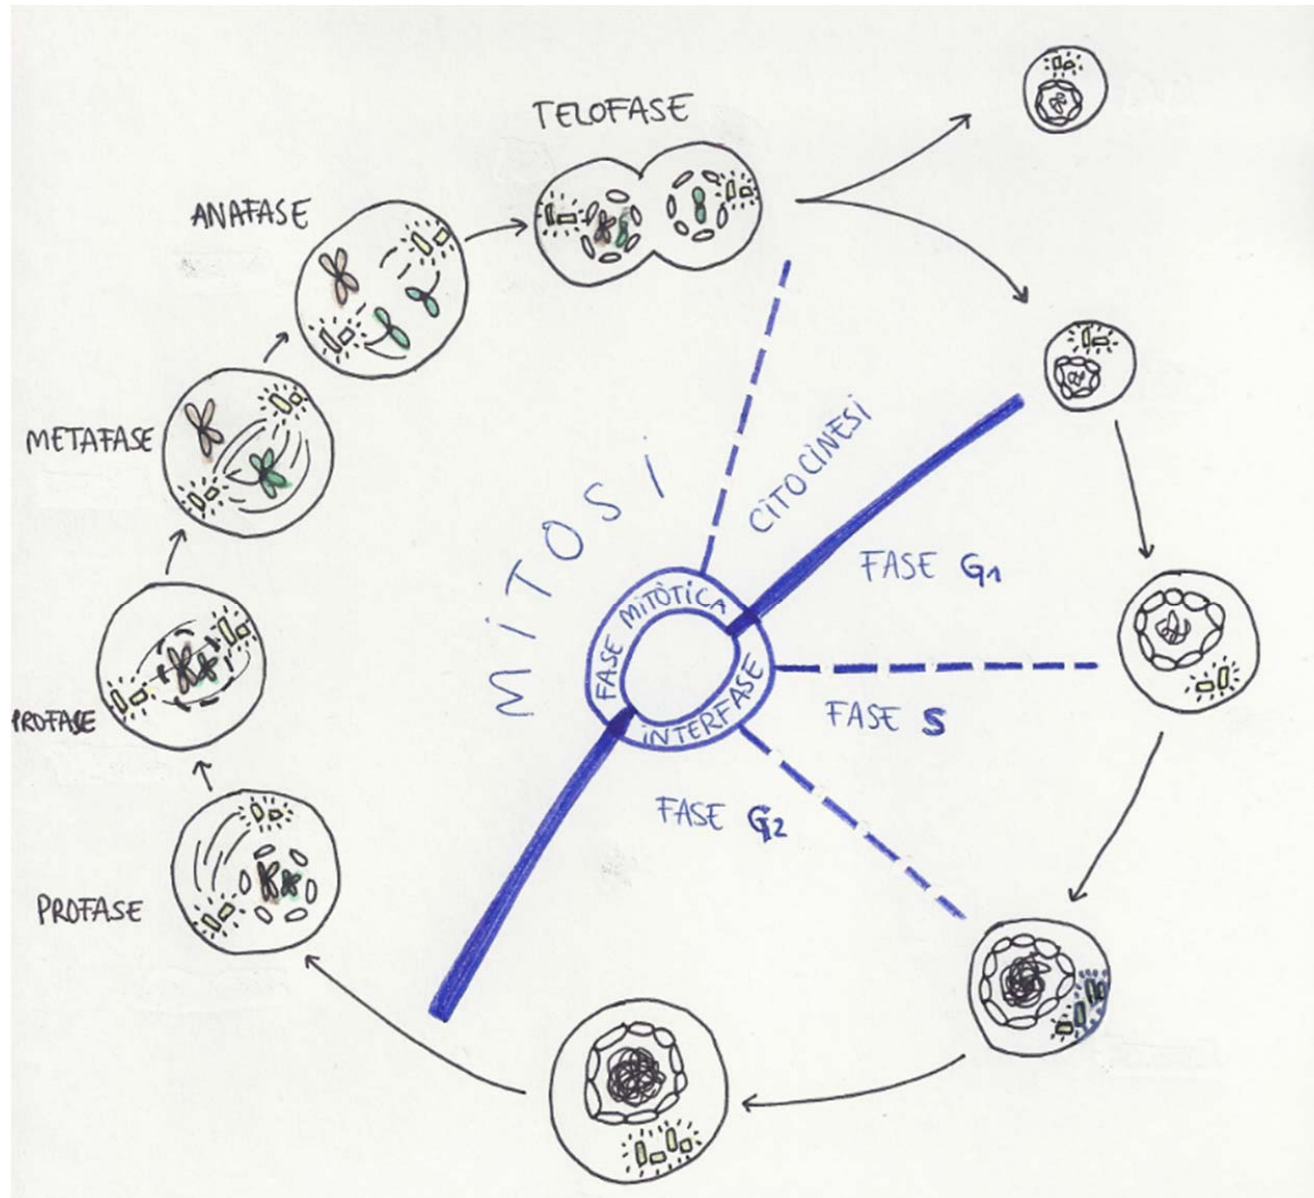 TELOFASE
ANAFASE
METAFASE
PROFASE
PROFASE
MITOSI
CITOCINESI
FASE MITÒTICA
INTERFASE
FASE G1
FASE S
FASE G2